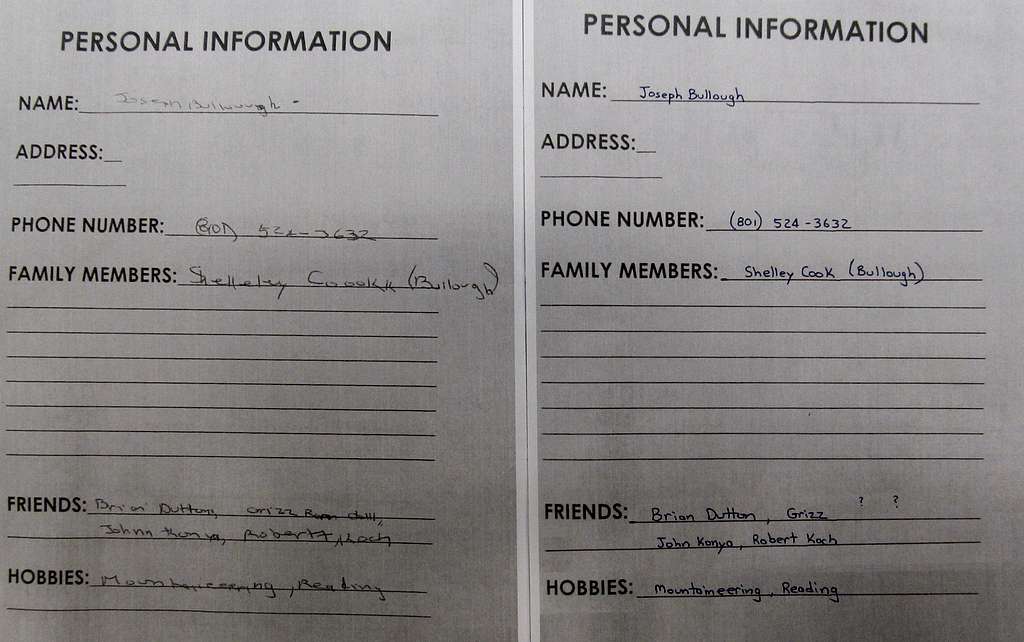 PERSONAL INFORMATION
NAME: Joseph Bullough -
ADDRESS:
PHONE NUMBER: (801) 524-3632
FAMILY MEMBERS: Shelleley Coookk (Bullough)
FRIENDS: Brian Dutton, Grizz
Johnn Robert Koch
HOBBIES: Mountaineering, Reading
PERSONAL INFORMATION
NAME: Joseph Bullough
ADDRESS:
PHONE NUMBER: (801) 524-3632
FAMILY MEMBERS: Shelley Cook (Bullough)
FRIENDS: Brian Dutton, Grizz ? ?
John Konya, Robert Koch
HOBBIES: Mountaineering, Reading